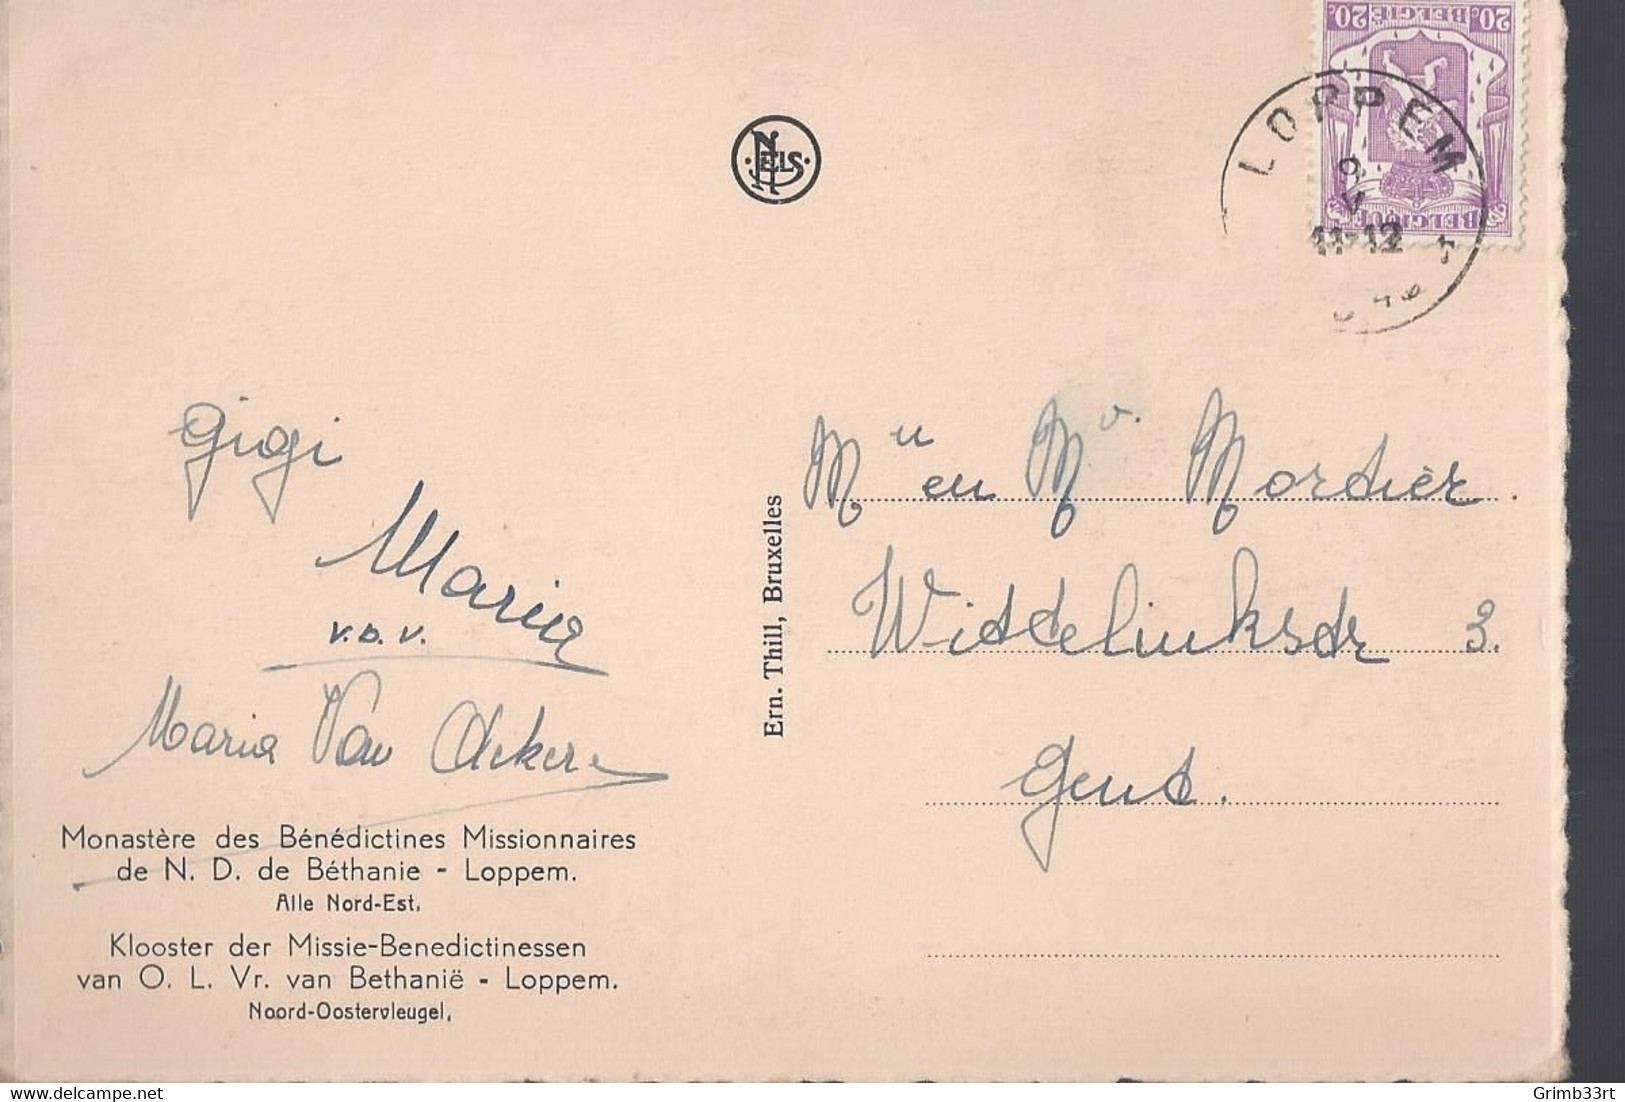 20c BELGIË 20c
BELGIQUE
LOPPEM
11-12
NELS
Gigi
Maria
v.d.v.
Maria Van
Mr en Mv. Mordier.
Widdelinkstr 3.
Gent.
Ern. Thill, Bruxelles
Monastère des Bénédictines Missionnaires
de N. D. de Béthanie - Loppem.
Alle Nord-Est,
Klooster der Missie-Benedictinessen
van O. L. Vr. van Bethanië - Loppem.
Noord-Oostervleugel,
delcampe.net
Grimb33rt